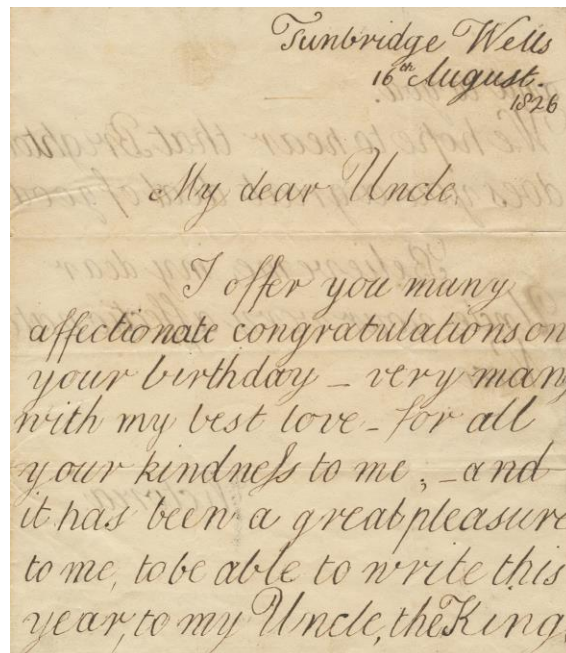 Tunbridge Wells
16th August.
1826
My dear Uncle,
I offer you many
affectionate congratulations on
your birthday – very many
with my best love – for all
your kindness to me, – and
it has been a great pleasure
to me, to be able to write this
year, to my Uncle, the King,